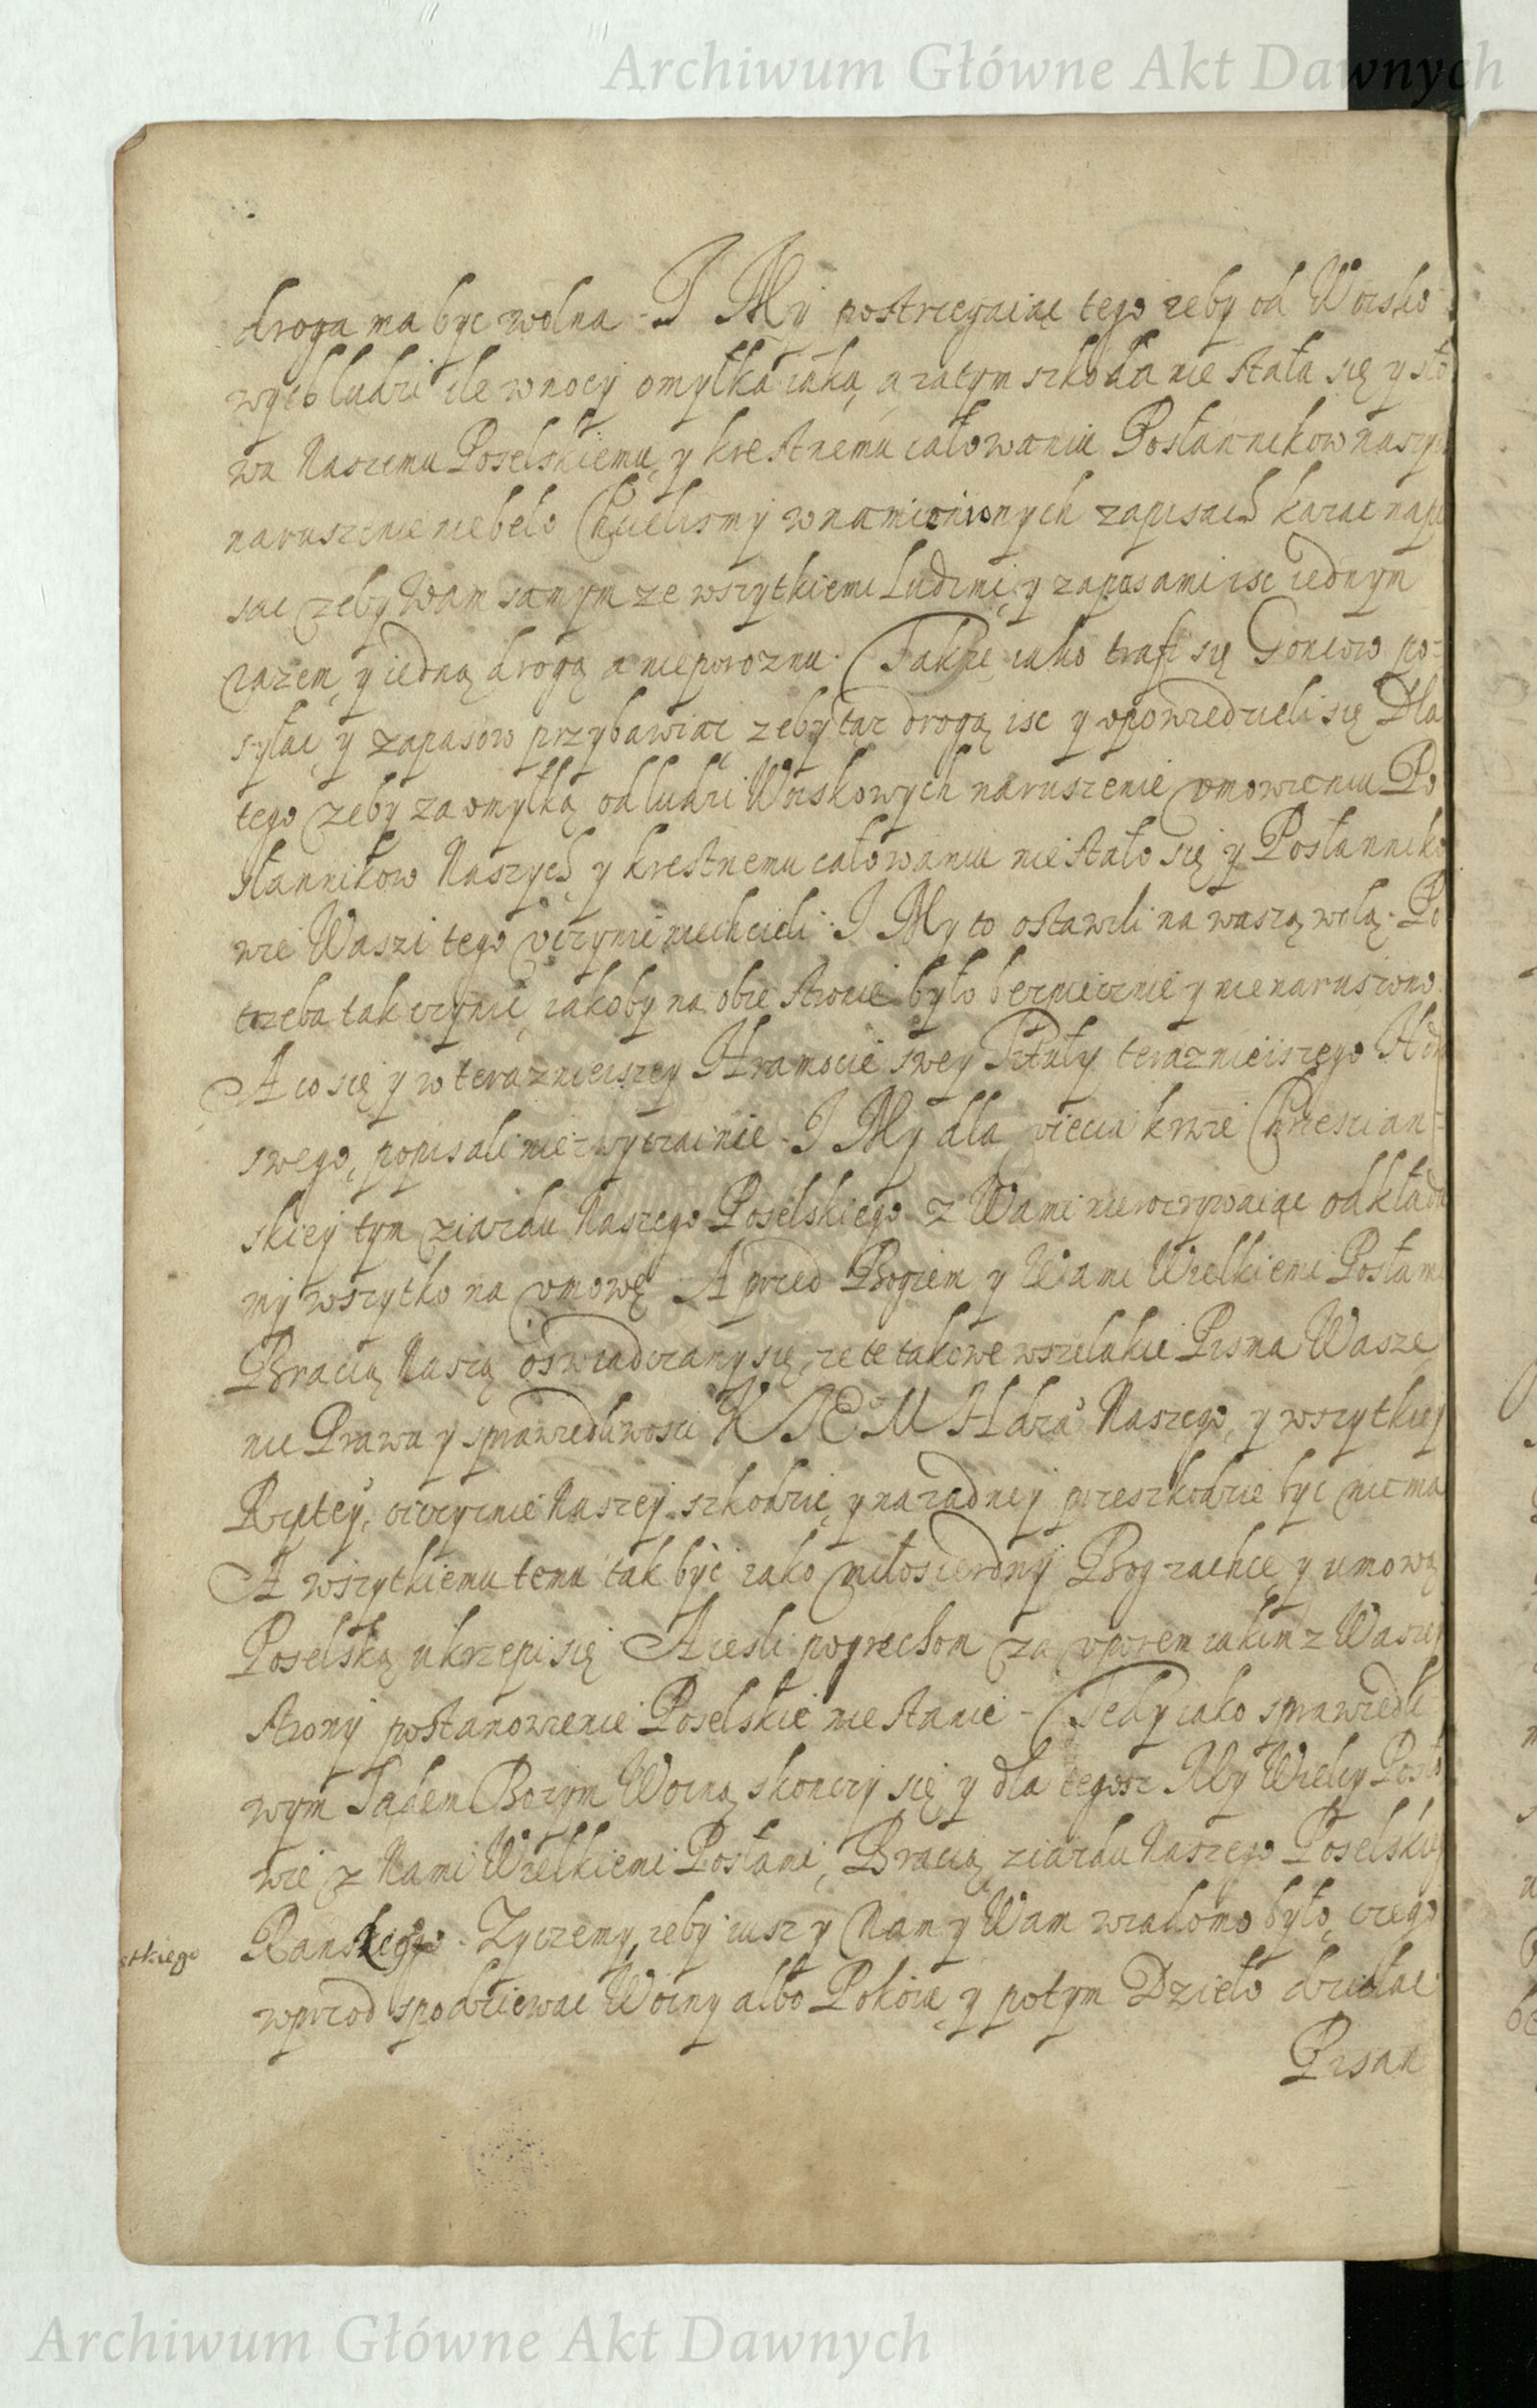 Archiwum Główne Akt Dawnych
droga ma byc wolna - I My postrzegaiąc tego zeby od Woisko
wych ludzi ile w nocy omyłka iaka, a zatym szkoda nie stała się y sło
wa Naszemu Poselskiemu, y krestnemu całowaniu Posłannikow naszy
naruszenie nebeło Chcielismy w namienionych zapisach kazac napi
sac zeby Wam samym ze wszytkiemi Ludzmi, y zapasami isc iednym
razem, y iedną drogą a nieporoznu. Takze iako trafi się Goncow po-
syłac, y zapasow przybawiac zeby taz drogą isc y opowiedzieli się Dla
tego zeby za omyłką od ludzi Woiskowych naruszenie omowieniu Po
słannikow Naszych, y krestnemu całowaniu nie stało się y Posłanniko
wie Waszi tego uczynic niechcieli. I My to ostawili na waszą wolą. Po
trzeba tak czynic, iakoby na obie stronie było bezpiecznie y nienaruszono.
A co się y w teraznieiszey Hramocie swey Tituły teraznieiszego Hdra
swego, popisali niezwyczainie - I My dla, ciecia krwie Chrescian-
skiey tym ziazdu Naszego Poselskiego z Wami nierozrywaiąc odkłada
my wszytko na omowę. A przed Bogiem y Wami Wielkiemi Posłami
Bracią Naszą oswiadczamy się, ze te takowe wszelakie Pisma Wasze,
nie Prawu y sprawiedliwosci K JE M Hdra Naszego, y wszytkiey
Rzptey, oiczyznie Naszey szkodzic, y na zadney przeszkodzie byc nie ma
A wszytkiemu temu tak byc iako miłosierdny Bog zachce, y umową
Poselską ukrzepi się. A iesli po grzechom za uporem iakim z Waszey
strony postanowienie Poselskie nie stanie - Tedy iako sprawiedli
wym Sądem Bozym Woiną skonczy się y dla tegosz My Wielcy Posło
wie z Nami Wielkiemi Posłami, Bracią ziazdu Naszego Poselskie
stkiego
Panskiego. Zyczemy, zeby iusz y Nam y Wam wiadomo było, czego
wprzod spodziewac Woiny albo Pokoia, y potym Dzieło dziełac
Pisan
Archiwum Główne Akt Dawnych